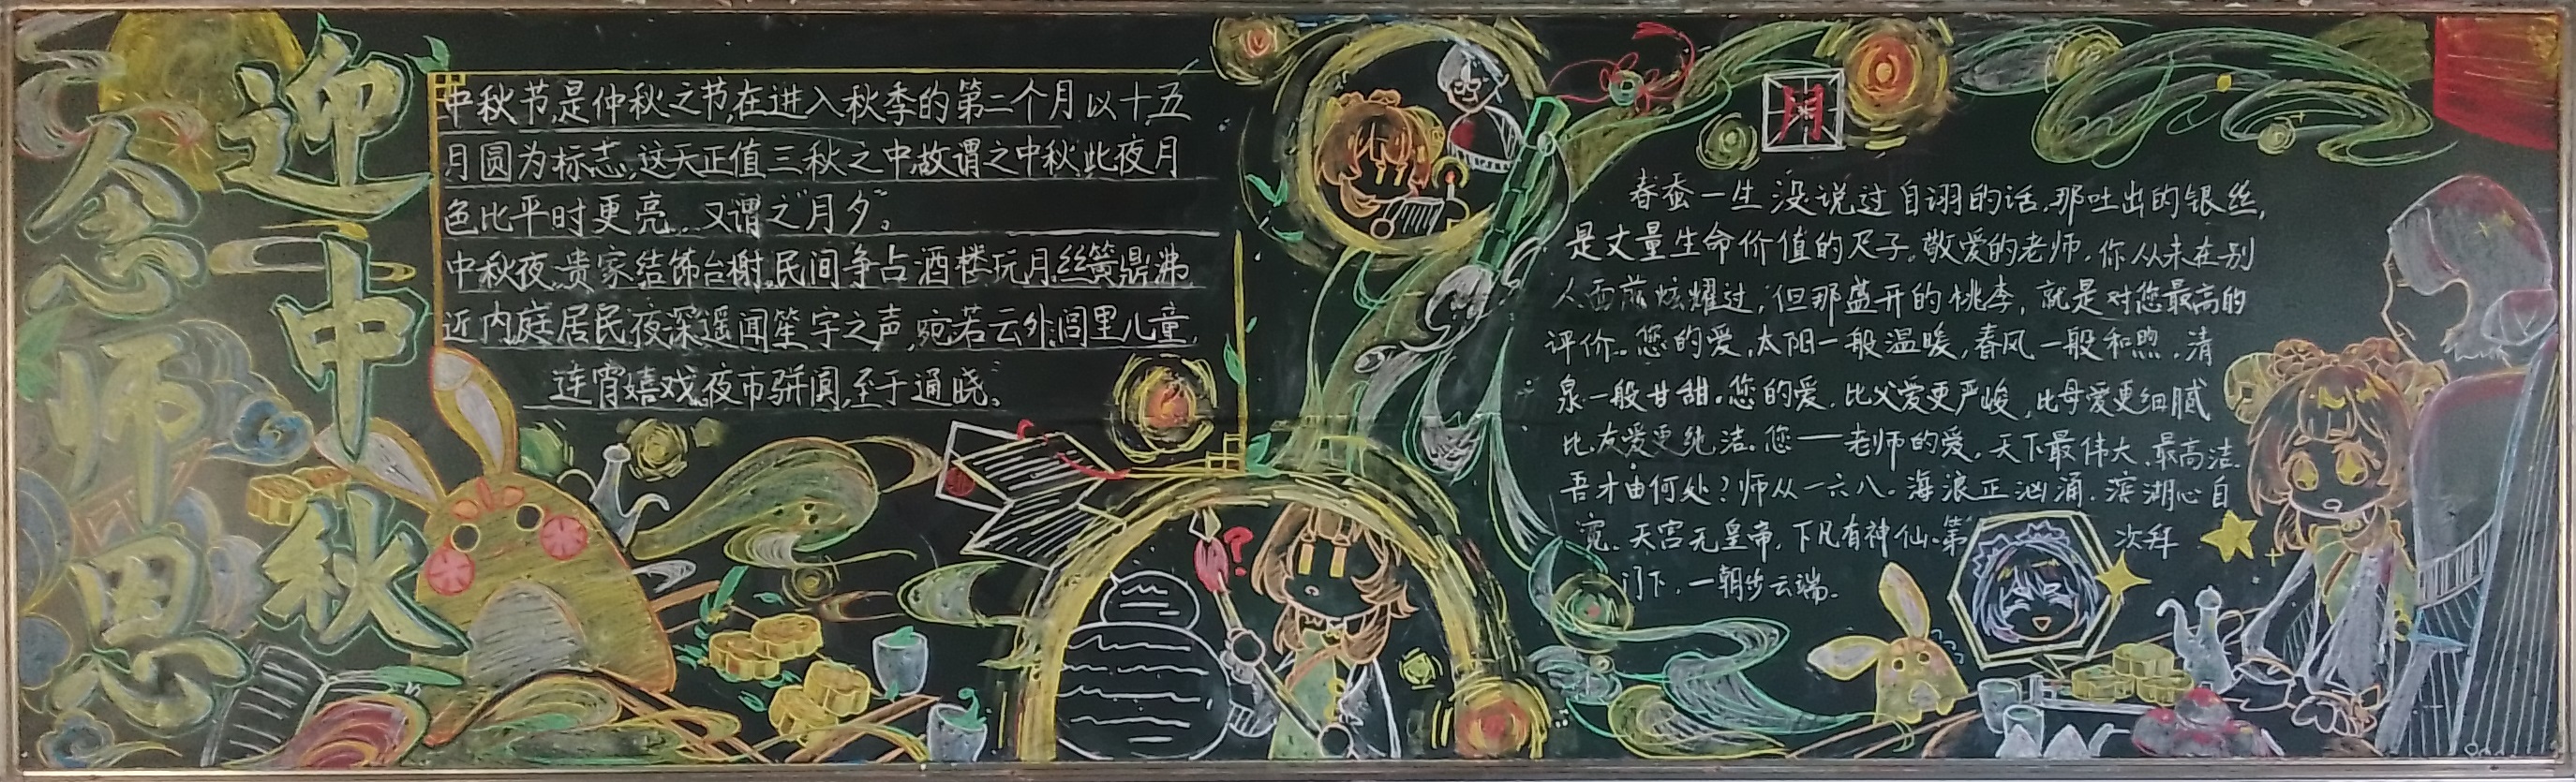 迎中秋
念师恩
中秋节,是仲秋之节,在进入秋季的第二个月,以十五
月圆为标志,这天正值三秋之中,故谓之中秋,此夜月
色比平时更亮,又谓之“月夕”。
中秋夜,贵家结饰台榭,民间争占酒楼玩月,丝簧鼎沸
近内庭居民,夜深遥闻笙竽之声,宛若云外,闾里儿童,
连宵嬉戏,夜市骈阗,至于通晓。
?
月
春蚕一生没说过自诩的话,那吐出的银丝,
是丈量生命价值的尺子。敬爱的老师,你从未在别
人面前炫耀过,但那盛开的桃李,就是对您最高的
评价。您的爱,太阳一般温暖,春风一般和煦,清
泉一般甘甜。您的爱,比父爱更严峻,比母爱更细腻
比友爱更纯洁。您——老师的爱,天下最伟大,最高洁.
吾才由何处?师从一六八。海浪正汹涌,滨湖心自
宽。天宫无皇帝,下凡有神仙。第 次拜
门下,一朝步云端。